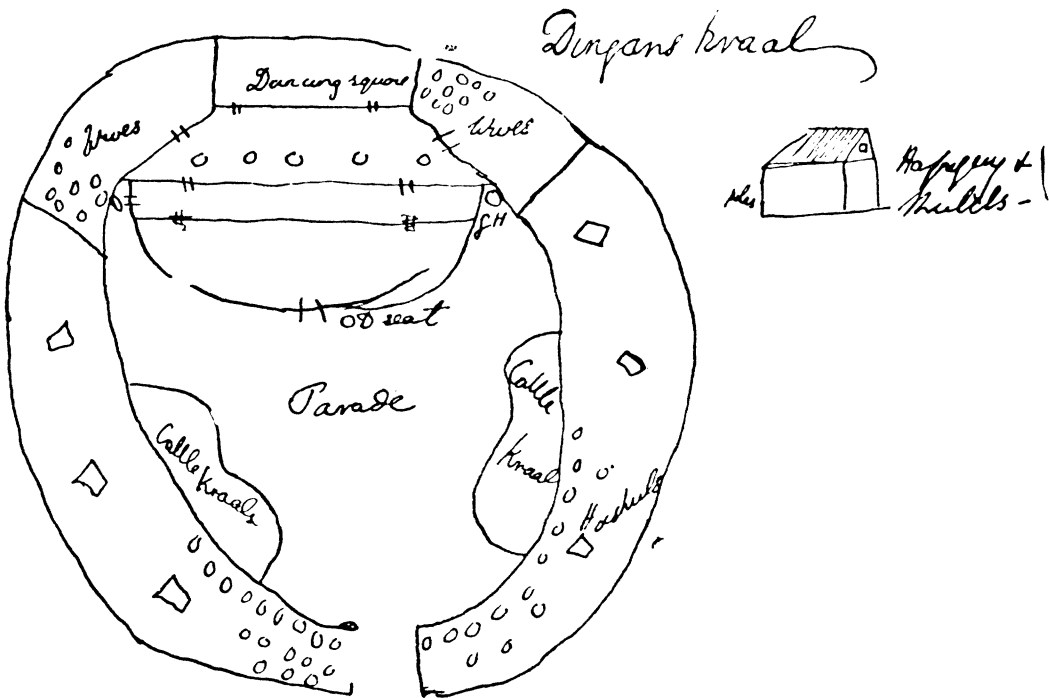 Dingans kraal
Dancing square
Wives
Wives
GH
OD seat
Parade
Cattle
Kraal
Cattle
Kraals